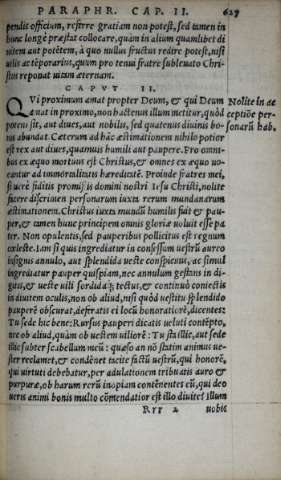 PARAPHR. CAP. II. 627
pendit officium, referre gratiam non potest, sed tamen in
hunc longè præstat collocare, quàm in alium quamlibet di
uitem aut potẽtem, à quo nullus fructus redire potest, nisi
uilis ac tẽporarius, quum pro tenui fratre subleuato Chri-
stus reponat uitam æternam.
CAPVT II.
QVi proximum amat propter Deum, & qui Deum
amat in proximo, non hactenus illum metitur, quòd
potens sit, aut diues, aut nobilis, sed quatenus diuinis bo-
nis abundat. Cæterum ad hãc æstimationem nihilo potior
est rex aut diues, quamuis humili aut paupere. Pro omni-
bus ex æquo mortuus est Christus, & omnes ex æquo uo-
cantur ad immortalitatis hæreditatẽ. Proinde fratres mei,
si uerè fiditis promissis domini nostri Iesu Christi, nolite
facere discrimen personarum iuxta rerum mundanarum
æstimationem. Christus iuxta mundũ humilis fuit & pau-
per, & tamen hunc principem omnis gloriæ uoluit esse pa
ter. Non opulentis, sed pauperibus pollicitus est regnum
cœleste. Iam si quis ingrediatur in consessum uestrũ aureo
insignis annulo, aut splendida ueste conspicuus, ac simul
ingrediatur pauper quispiam, nec annulum gestans in di-
gitis, & ueste uili sordidaq; tectus, & continuò coniectis
in diuitem oculis, non ob aliud, nisi quòd uestitu splendido
pauperẽ obscurat, deferatis ei locũ honoratiorẽ, dicentes:
Tu sede hîc bene: Rursus pauperi dicatis ueluti contẽpto,
nec ob aliud, quàm ob uestem uiliorẽ: Tu sta illic, aut sede
illîc subter scabellum meũ: quæso an nõ statim animus ue-
ster reclamet, & condẽnet tacitè factũ uestrũ, qui honorẽ,
qui uirtuti debebatur, per adulationem tribuatis auro &
purpuræ, ob harum rerũ inopiam contẽnentes eũ, qui deo
ueris animi bonis multo cõmendatior est illo diuite? Illum
Rrr 2 uobis
Nolite in ac
ceptiõe per-
sonarũ hab.